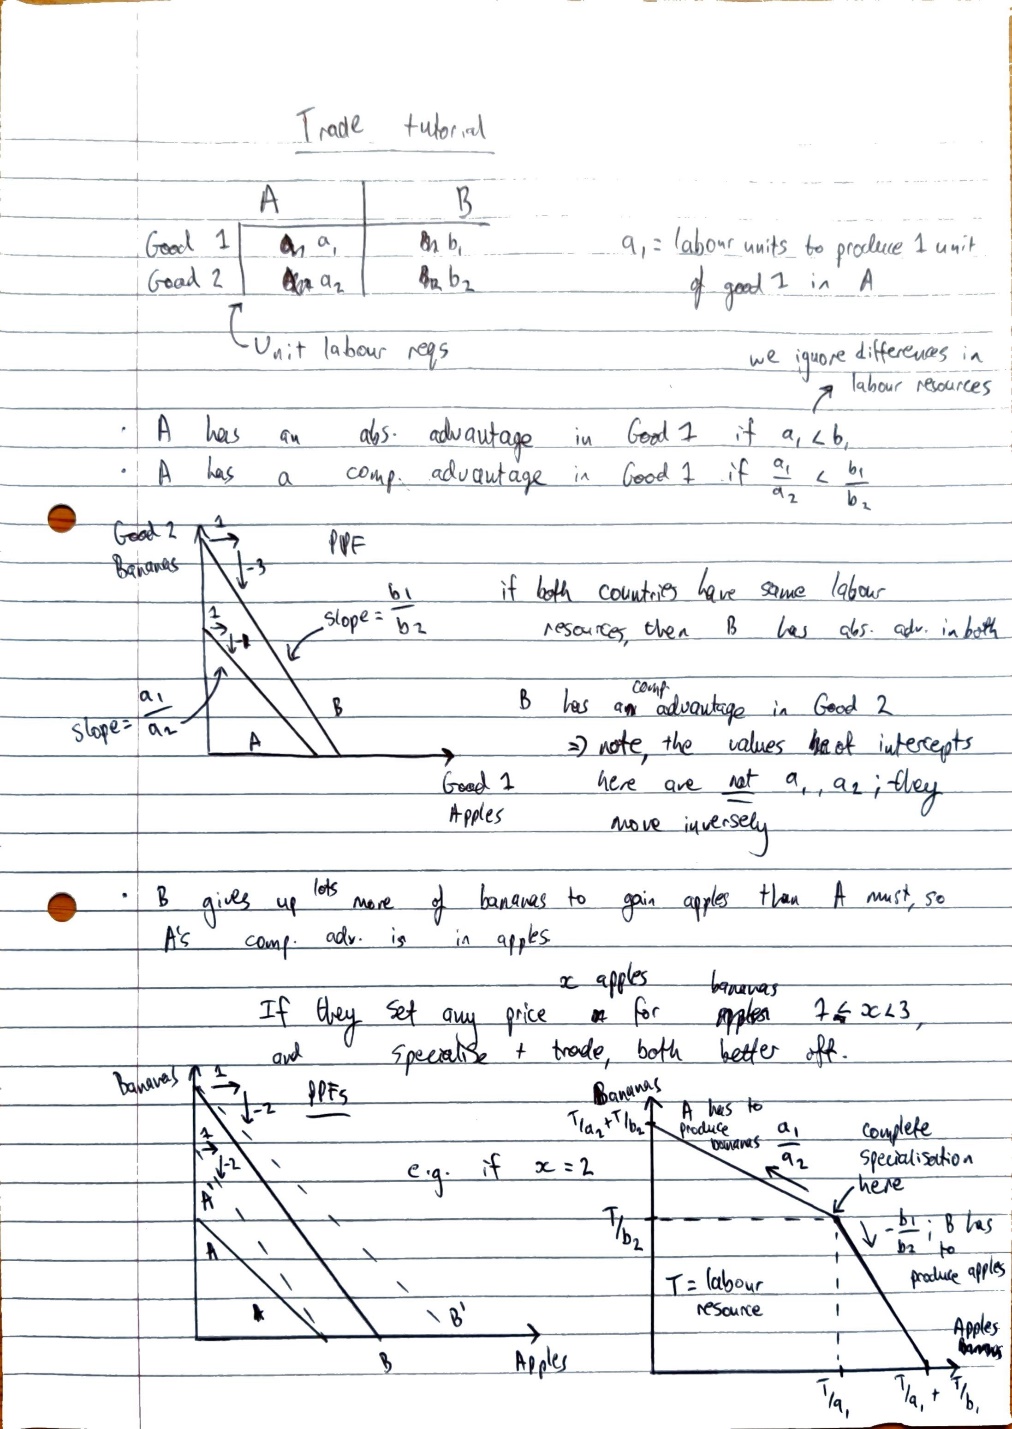 Trade tutorial
A B
Good 1 a₁ b₁
Good 2 a₂ b₂
a₁ = labour units to produce 1 unit
of good 1 in A
Unit labour reqs
we ignore differences in
labour resources
· A has an abs. advantage in Good 1 if a₁ < b₁
· A has a comp. advantage in Good 1 if a₁/a₂ < b₁/b₂
Good 2
Bananas
1
-3
PPF
slope = b₁/b₂
1
slope = a₁/a₂
A
B
Good 1
Apples
if both countries have same labour
resources, then B has abs. adv. in both
B has a comp. advantage in Good 2
⇒ note, the values of intercepts
here are not a₁, a₂; they
move inversely
· B gives up lots more of bananas to gain apples than A must, so
A's comp. adv. is in apples
If they set any price x apples for bananas 1 ≤ x < 3,
and specialise + trade, both better off.
Bananas
1
-2
PPFs
1
-2
A'
A
B'
B
Apples
e.g. if x = 2
Bananas
T/a₂ + T/b₂
A has to
produce
bananas
a₁/a₂
complete
specialisation
here
T/b₂
-b₁/b₂; B has
to
produce apples
T = labour
resource
Apples
T/a₁
T/a₁ + T/b₁